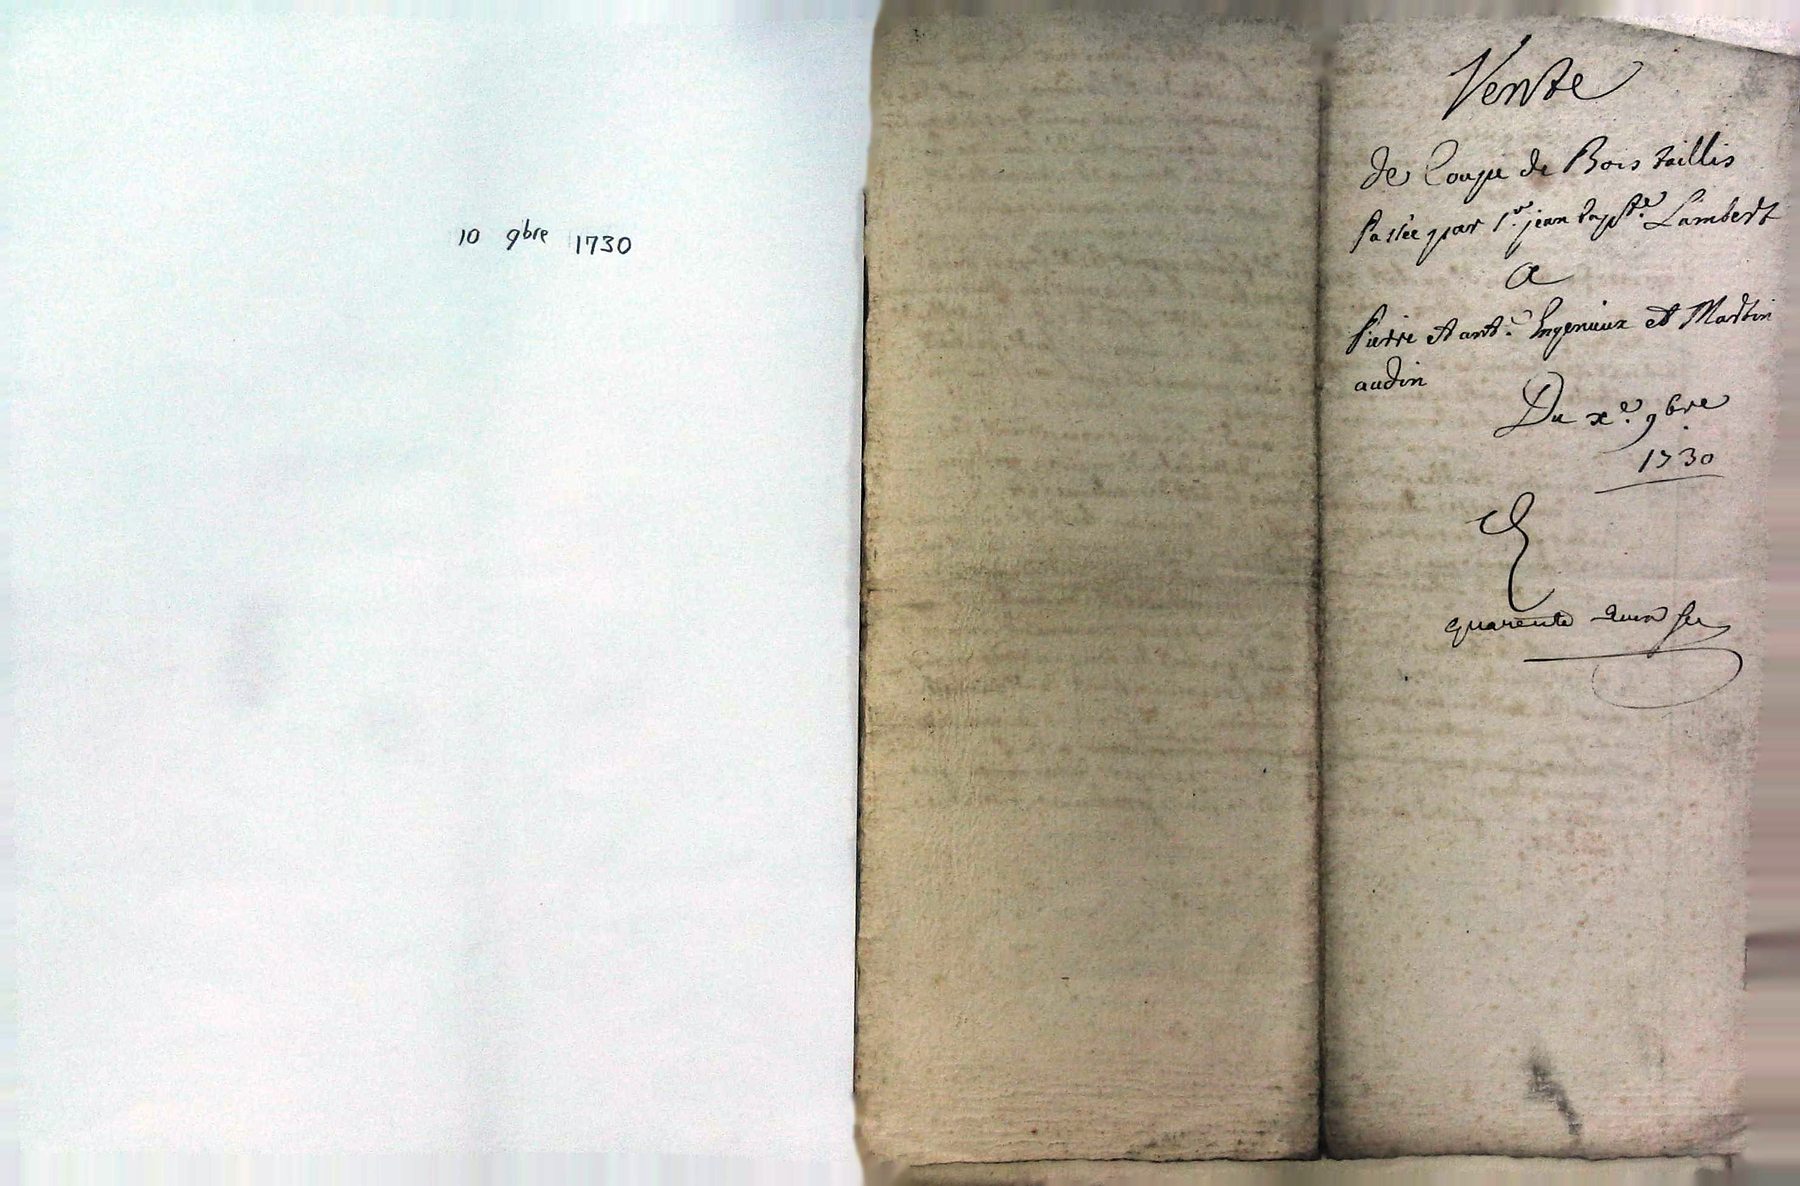 10 9bre 1730
Vente
de Coupe de Bois taillis
Passée par Sr. jean bapste. Lambert
a
Pierre et ant.e Ingenieux et Martin
audin
Du xe. 9bre
1730
quarente